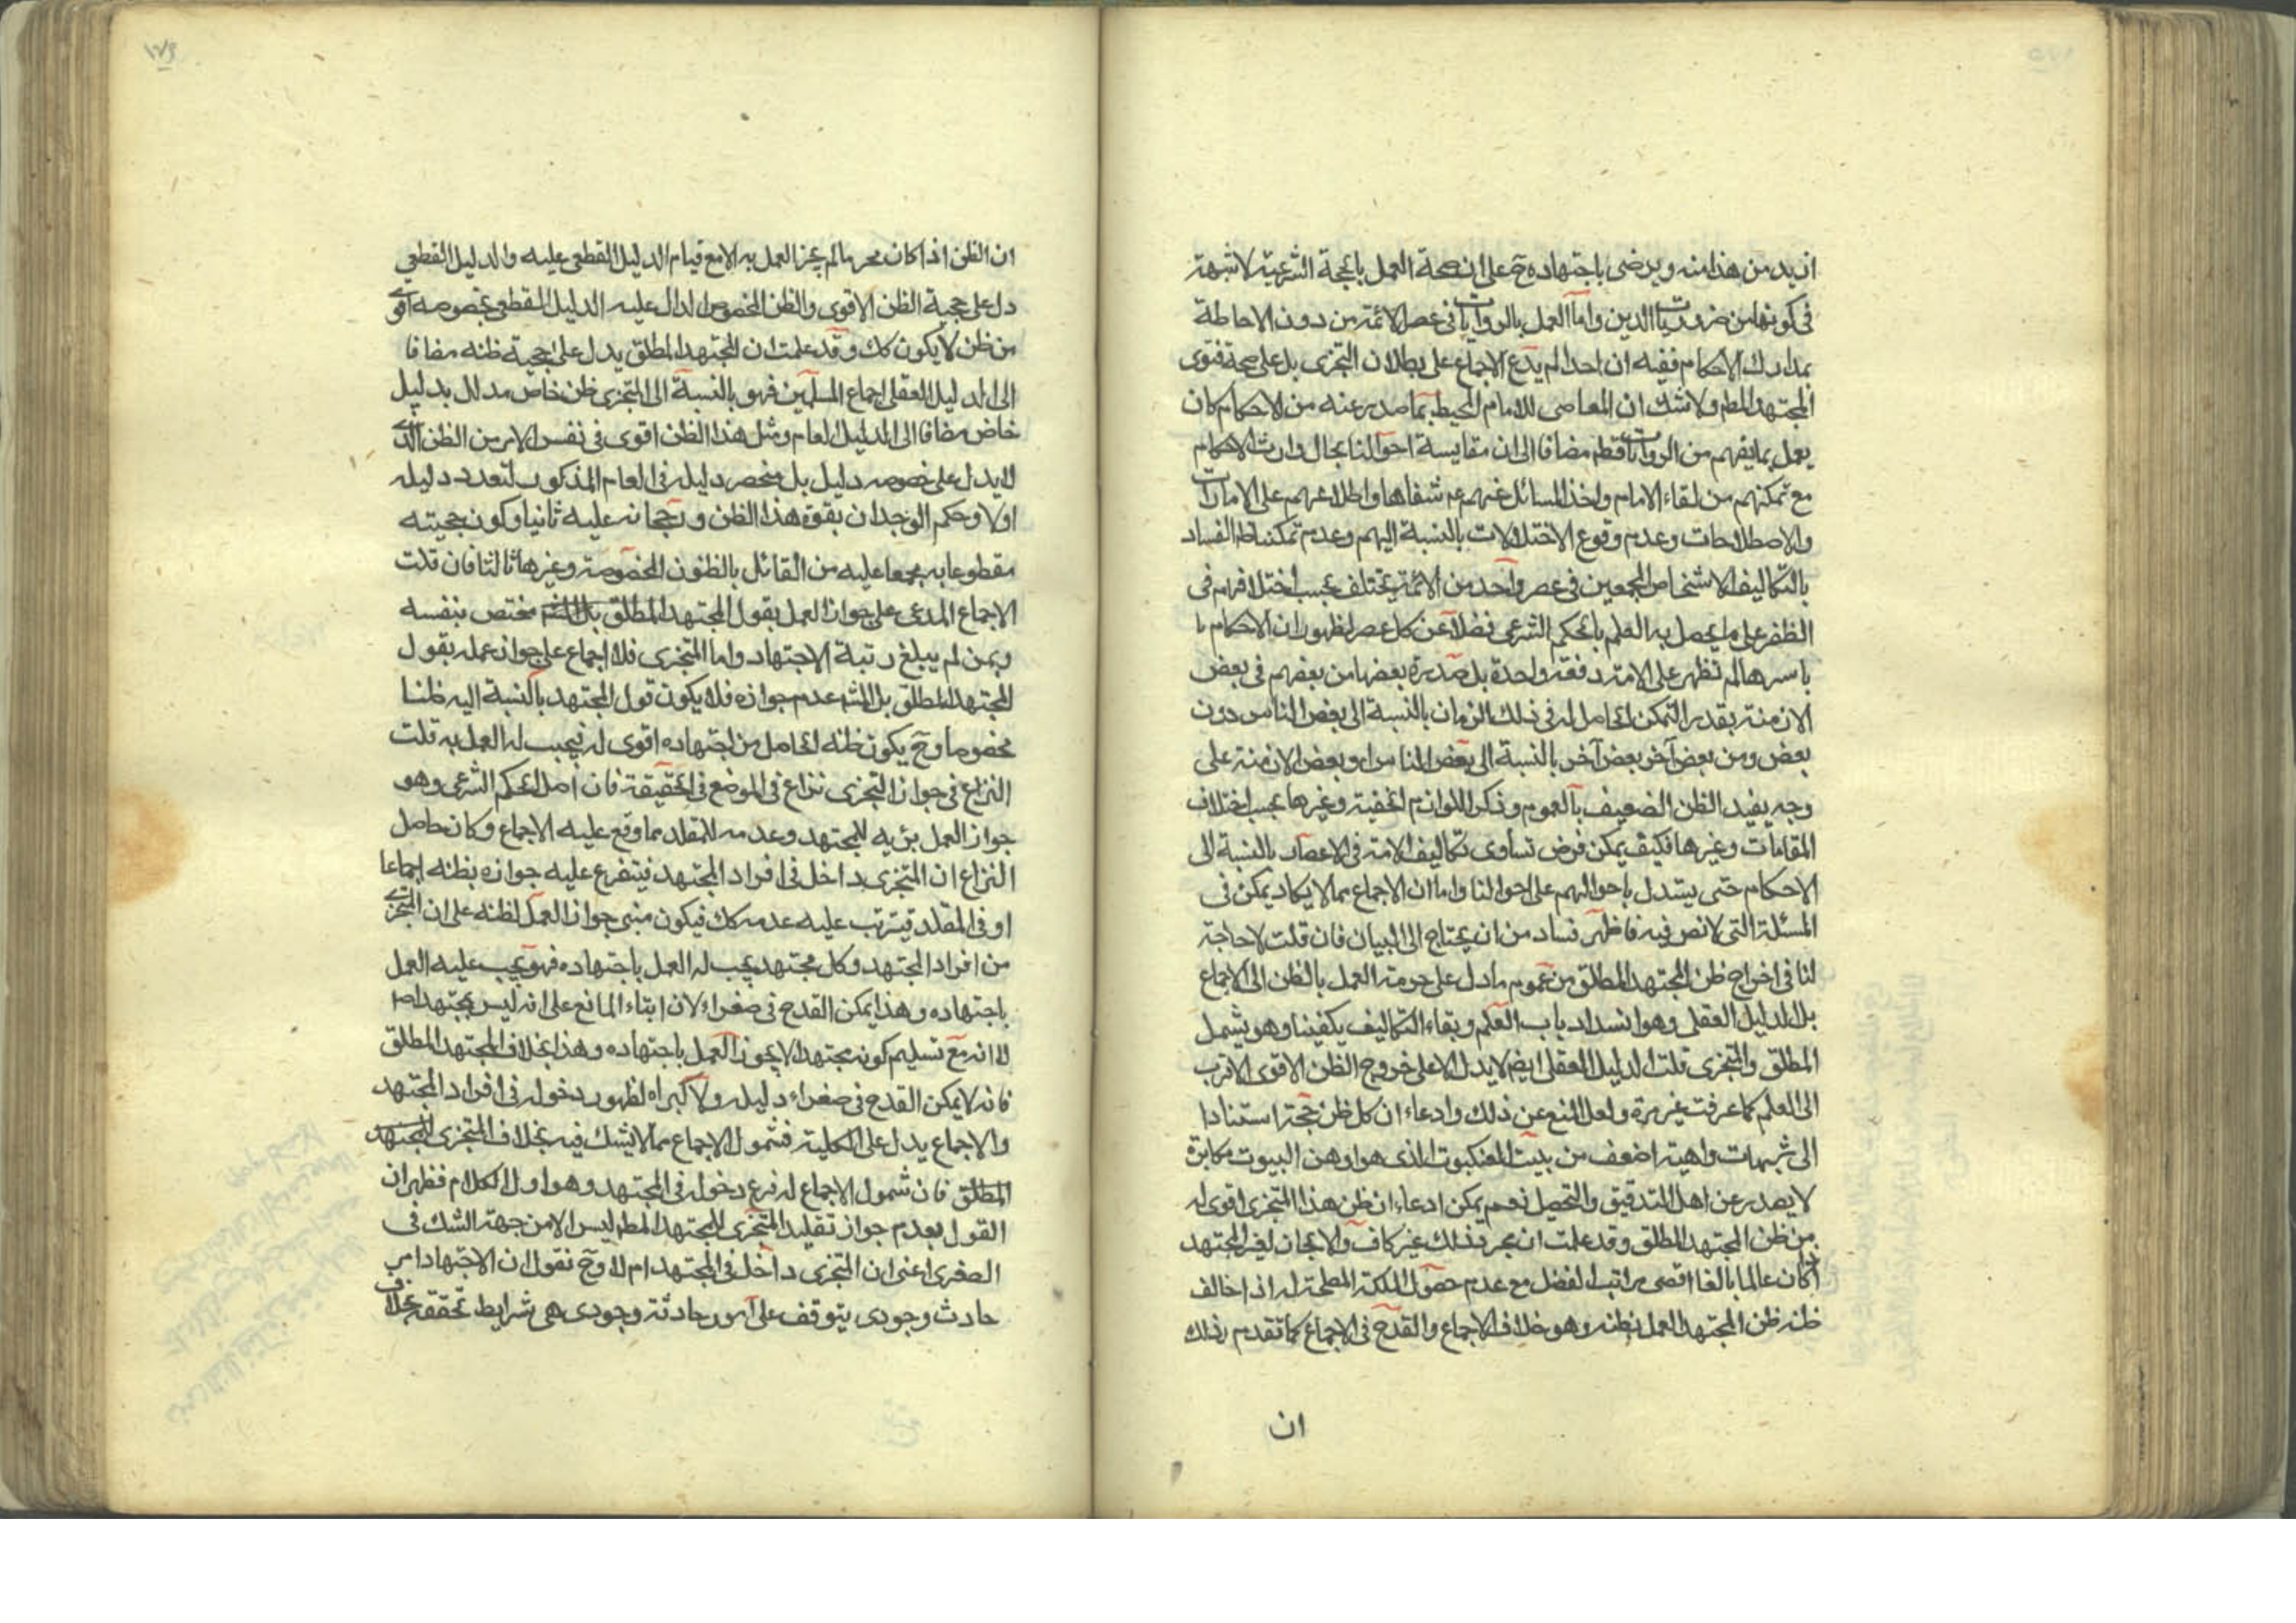 ازيد من هذا منه ويرضى باجتهاده حَ على ان صحة العمل بالحجة الشرعية لا شبهة
فى كونها من ضروريات الدين واما العمل بالروايات فى عصر الائمة من دون الاحاطة
بمدارك الاحكام ففيه ان احدا لم يدع الاجماع على بطلان التجزى بل على صحة فتوى
المجتهد المطم ولا شك ان المعاصى للامام المحيط بما صدر عنه من الاحكام كان
يعمل بما يفهم من الروايات قطم مضافا الى ان مقايسة احوالنا بحال وارث الاحكام
مع تمكنهم من لقاء الامام واخذ المسائل عنهم عم شفاها واطلاعهم على الامارات
والاصطلاحات وعدم وقوع الاختلالات بالنسبة اليهم وعدم تمكننا ظ الفساد
بالتكاليف الاشخاص المجمعين فى عصر واحد من الائمة يختلف بحسب اختلافهم فى
الظفر على ما يحصل به العلم بالحكم الشرعى فضلا عن كل عصر لظهور ان الاحكام با
باسرها لم تظهر على الامة دفعة واحدة بل صدرة بعضها من بعضهم فى بعض
الازمنة بقدر التمكن الحاصل له فى ذلك الزمان بالنسبة الى بعض الناس دون
بعض ومن بعض آخر بعض آخر بالنسبة الى بعض الناس او بعض الازمنة على
وجه يفيد الظن الضعيف بالعموم وذكر اللوازم الخفية وغيرها بحسب اختلاف
المقامات وغيرها فكيف يمكن فرض تساوى تكاليف الامة فى الاعصار بالنسبة الى
الاحكام حتى يستدل باحوالهم على احوالنا واما ان الاجماع مما لا يكاد يمكن فى
المسئلة التى لا نص فيه فاظهر فساد من ان يحتاج الى البيان فان قلت لا حاجة
لنا فى اخراج ظن المجتهد المطلق من عموم ما دل على حرمة العمل بالظن الى الاجماع
بل الدليل العقلى وهو انسداد باب العلم وبقاء التكاليف يكفينا وهو يشمل
المطلق والمتجزى قلت الدليل العقلى ايضم لا يدل الا على خروج الظن الاقوى الاقرب
الى العلم كما عرفت غير مرة ولعل المنع عن ذلك وادعاء ان كل ظن حجة استنادا
الى شبهات واهية اضعف من بيت العنكبوت الذى هو اوهن البيوت مكابرة
لا يصدر عن اهل التدقيق والتحصيل نعم يمكن ادعاء ان ظن هذا المتجزى اقوى له
من ظن المجتهد المطلق وقد علمت ان مجرد ذلك غير كاف والا لجاز لغير المجتهد
اذا كان عالما بالغا اقصى مراتب الفضل مع عدم حصول الملكة المطمة له اذا خالف
ظنه ظن المجتهد العمل بظنه وهو خلاف الاجماع والقدح فى الاجماع كما تقدم وذلك
ان
ان الظن اذا كان محرما لم يجز العمل به الا مع قيام الدليل القطعى عليه والدليل القطعى
دل على حجية الظن الاقوى والظن المخصوص الدال عليه الدليل القطعى بخصوصه اقوى
من ظن لا يكون كك وقد علمت ان المجتهد المطلق يدل على حجية ظنه مضافا
الى الدليل العقلى اجماع المسلمين فهو بالنسبة الى المتجزى ظن خاص مدلل بدليل
خاص مضافا الى الدليل العام ومثل هذا الظن اقوى فى نفس الامر من الظن الذى
لا يدل على خصوصه دليل بل منحصر دليله فى العام المذكور لتعدد دليله
اولا وحكم الوجدان بقوة هذا الظن ورجحانه عليه ثانيا وكون حجيته
مقطوعا به مجمعا عليه من القائل بالظنون المخصوصة وغيرها ثالثا فان قلت
الاجماع المدعى على جواز العمل بقول المجتهد المطلق مختص بنفسه
وبمن لم يبلغ رتبة الاجتهاد واما المتجزى فلا اجماع على جواز عمله بقول
المجتهد المطلق بل المشه عدم جوازه فلا يكون قول المجتهد بالنسبة اليه ظنا
مخصوصا وحَ يكون ظنه الحاصل من اجتهاده اقوى له فيجب له العمل به قلت
النزاع فى جواز التجزى نزاع فى الموضع فى الحقيقة فان اصل الحكم الشرعى وهو
جواز العمل برئيه للمجتهد وعدمه للمقلد مما وقع عليه الاجماع وكان حاصل
النزاع ان المتجزى داخل فى افراد المجتهد فيتفرع عليه جوازه بظنه اجماعا
او فى المقلد فيترتب عليه عدمه كك فيكون مبنى جواز العمل لظنه على ان المتجزى
من افراد المجتهد وكل مجتهد يجب له العمل باجتهاده فهو يجب عليه العمل
باجتهاده وهذا يمكن القدح فى صغراه لان ابتاء المانع على انه ليس بمجتهد اصلا
لا انه مع تسليم كونه مجتهدا لا يجوز العمل باجتهاده وهذا بخلاف المجتهد المطلق
فانه لا يمكن القدح فى صغراء دليله ولا كبراه لظهور دخوله فى افراد المجتهد
والاجماع يدل على الكلية فشمول الاجماع مما لا يشك فيه بخلاف المتجزى المجتهد
المطلق فان شمول الاجماع له فرع دخوله فى المجتهد وهو اول الكلام فظهر ان
القول بعدم جواز تقليد المتجزى للمجتهد المطم ليس الا من جهة الشك فى
الصغرى اعنى ان المتجزى داخل فى المجتهد ام لا وحَ نقول ان الاجتهاد امر
حادث وجودى يتوقف على امور حادثة وجودى هى شرايط تحققه بخلاف